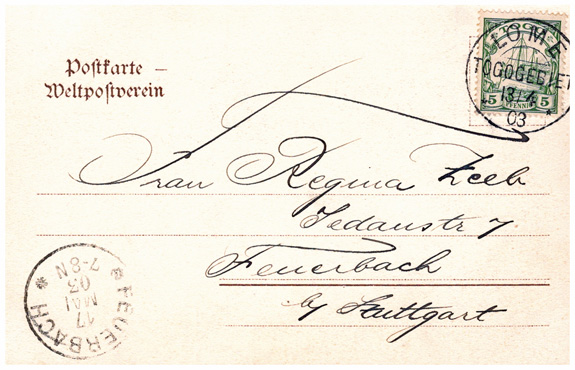 Postkarte —
Weltpostverein
TOGO
5 PFENNIG 5
LOME
TOGOGEBIET
13/4
03
*
Frau Regina Zeeb
Sedanstr 7
Feuerbach
b/ Stuttgart
* FEUERBACH *
17
MAI
03
7-8N